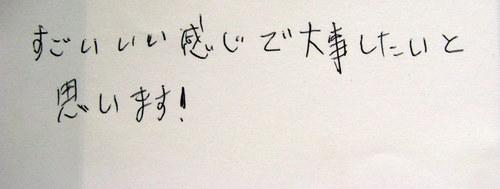 すごいいい感じで大事したいと
思います!